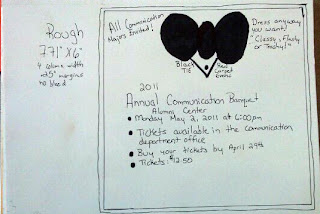 Rough
7.71" X 6"
4 column width
.25" margins
no bleed
All Communication
Majors Invited!
Dress any way
you want!
"Classy, Flashy
or Trashy!"
Black
TIE
Red
Carpet
Event
2011
Annual Communication Banquet
Alumni Center
• Monday May 2, 2011 at 6:00pm
• Tickets available in the communication
department office
• Buy your tickets by April 29th
• Tickets: $12.50